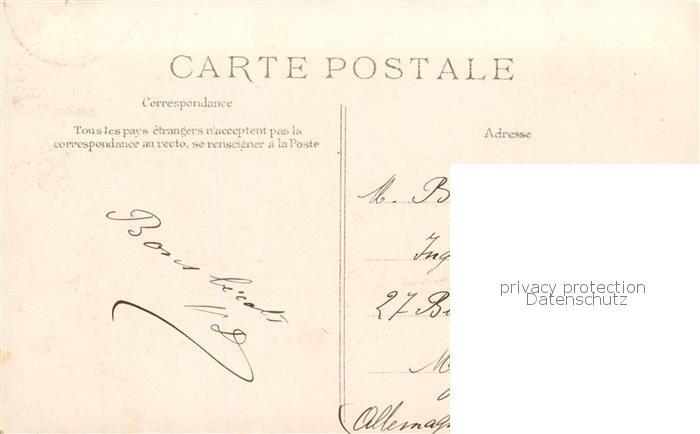 CARTE POSTALE
Correspondance
Tous les pays étrangers n'acceptent pas la
correspondance au recto, se renseigner à la Poste
Adresse
M. B
Ing
27 B
M
Allemag
Bons
privacy protection
Datenschutz